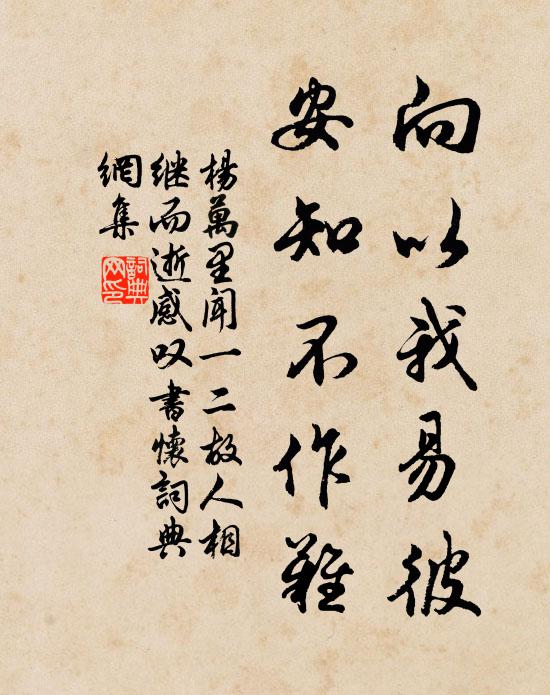 向以我易彼
安知不作難
楊萬里聞一二故人相
继而逝感叹書懷詞典
網集
詞典
网印